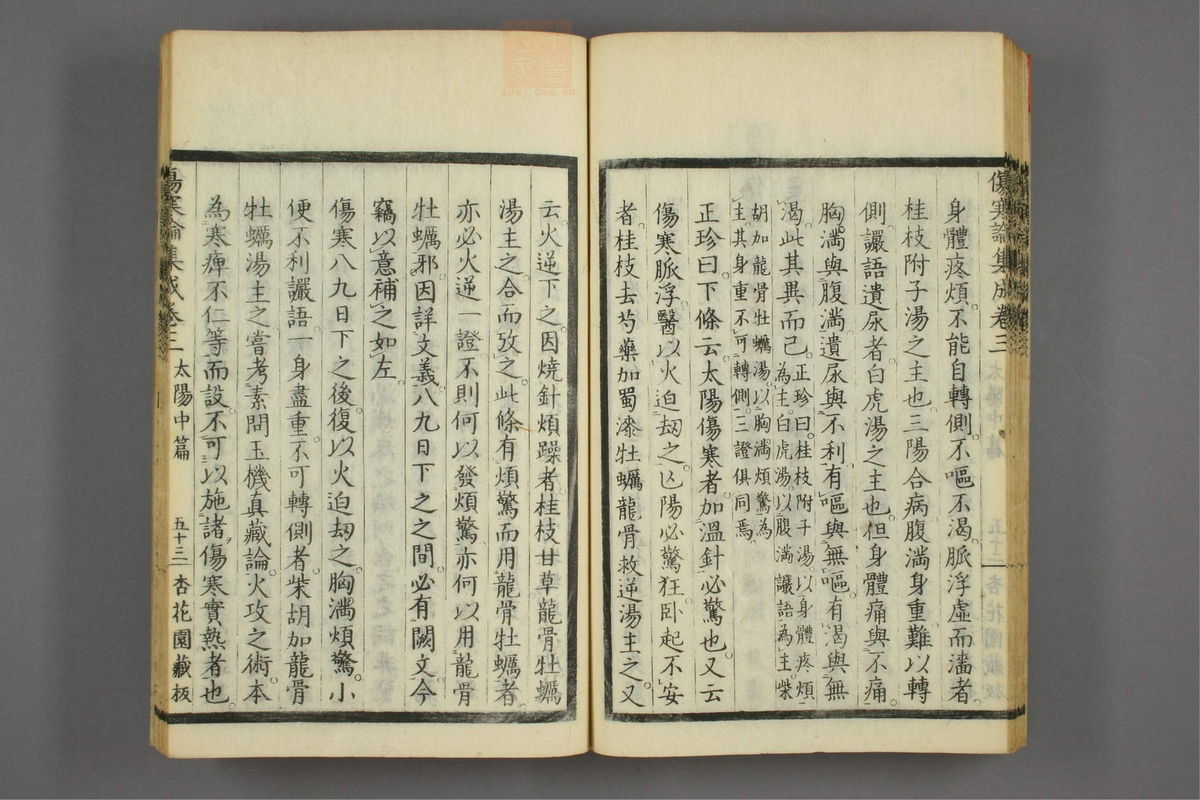 傷寒論集成卷三
身體疼煩。不能自轉側。不嘔不渴。脈浮虛而濇者
桂枝附子湯之主也。三陽合病腹滿身重難以轉
側。讝語遺尿者。白虎湯之主也。但身體痛與不痛
胸滿與腹滿遺尿與不利有嘔與無嘔。有渴與無
渴。此其異而已。
正珍曰。桂枝附子湯。以身體疼煩
為主。白虎湯。以腹滿讝語為主。柴
胡加龍骨牡蠣湯。以胸滿煩驚為
主。其身重不可轉側。三證俱同焉。
正珍曰。下條云。太陽傷寒者。加溫針必驚也。又云
傷寒脈浮。醫以火迫刼之。亾陽必驚狂。臥起不安
者。桂枝去芍藥加蜀漆牡蠣龍骨救逆湯主之。又
云。火逆下之。因燒針煩躁者。桂枝甘草龍骨牡蠣
湯主之。合而攷之。此條有煩驚而用龍骨牡蠣者。
亦必火逆一證。不則何以發煩驚。亦何以用龍骨
牡蠣邪。因詳文義。八九日下之之間。必有闕文。今
竊以意補之如左。
傷寒八九日下之後。復以火迫刼之。胸滿煩驚。小
便不利讝語。一身盡重。不可轉側者。柴胡加龍骨
牡蠣湯主之。嘗考素問玉機真藏論。火攻之術。本
為寒痺不仁等而設。不可以施諸傷寒實熱者也
傷寒論集成卷三
太陽中篇
五十三
杏花園藏板